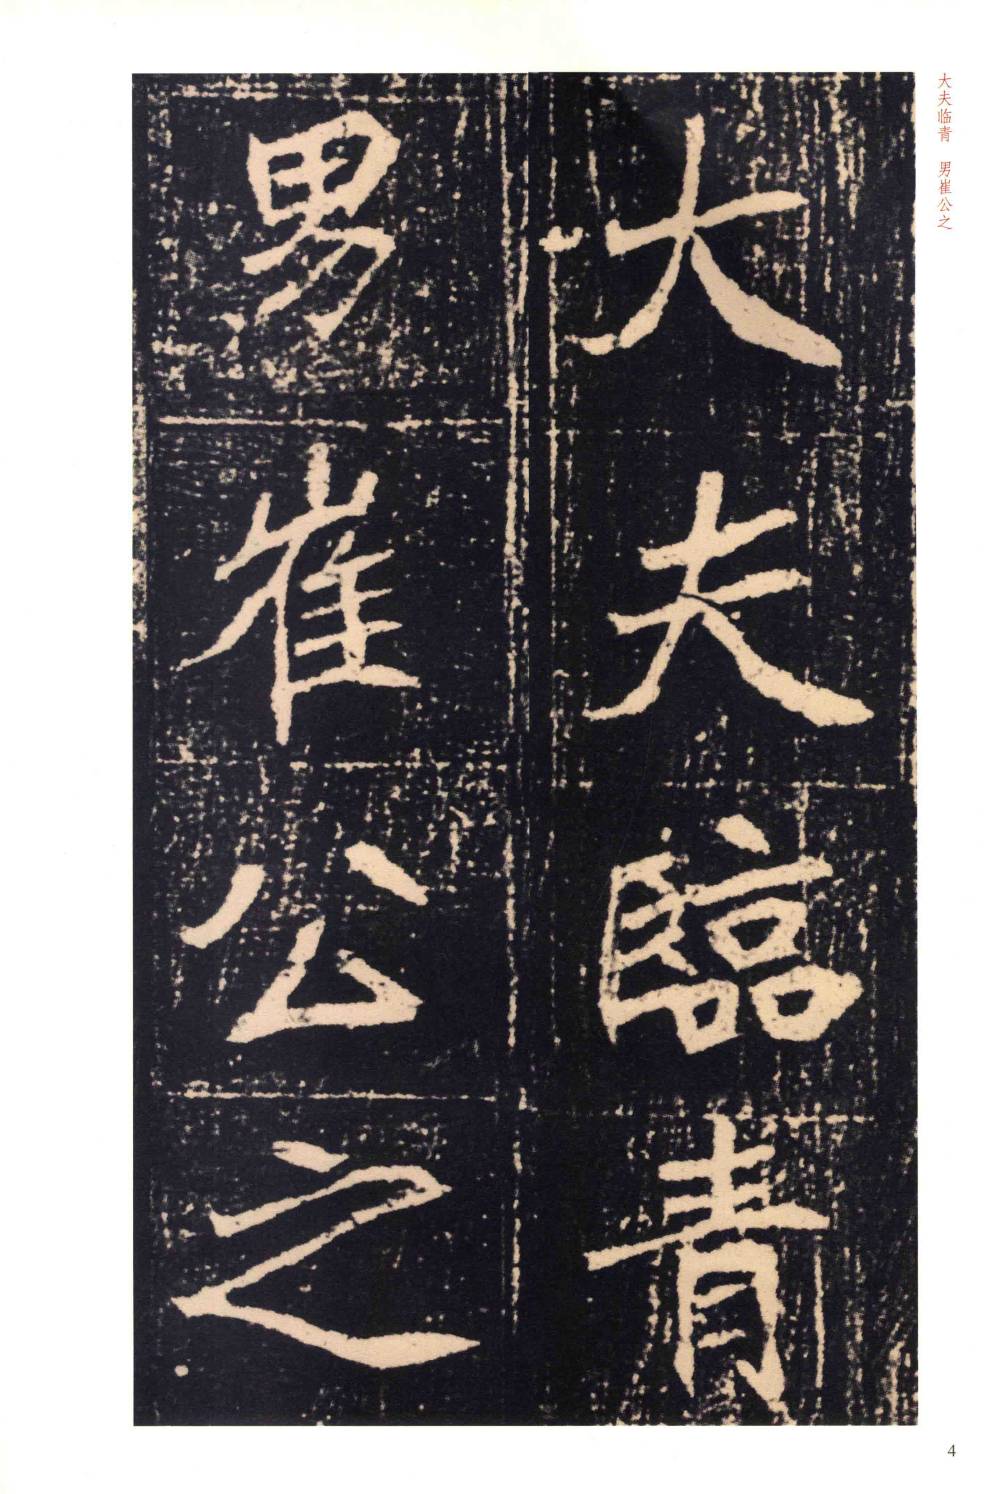 大夫临青　男崔公之
大夫臨青
男崔公之
4